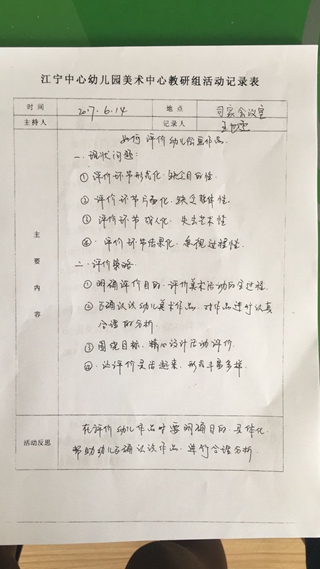 江宁中心幼儿园美术中心教研组活动记录表
时间 2017.6.14 地点 司家会议室
主持人 记录人
如何评价幼儿绘画作品
一、现状问题:
① 评价环节形式化,缺乏目的性.
② 评价环节片面化,缺乏整体性.
③ 评价环节成人化,失去艺术性
④ 评价环节结果化,忽视过程性.
主要内容
二、评价策略
① 明确评价目的,评价美术活动的全过程.
② 正确认识幼儿美术作品,对作品进行认真
合理的分析.
③ 围绕目标,精心设计活动评价.
④ 让评价灵活起来,形式丰富多样.
活动反思
在评价幼儿作品时要明确目的,具体化,
帮助幼儿正确认识作品,进行合理分析.